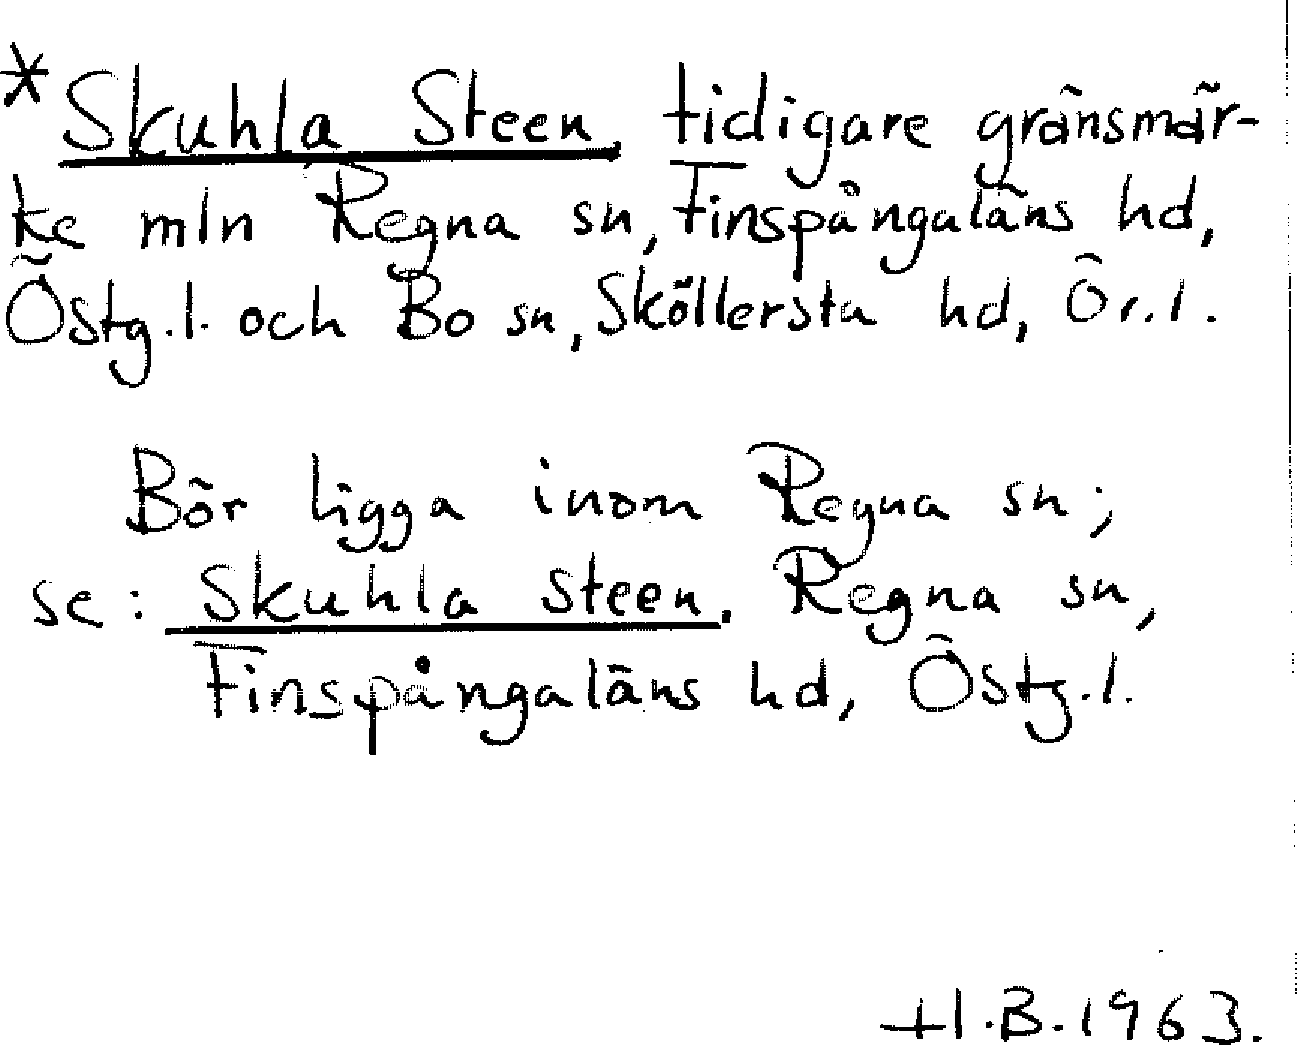 *Skuhla Steen, tidigare gränsmär-
ke mln Regna sn, Finspångaläns hd,
Östg.l. och Bo sn, Sköllersta hd, Ör.l.
Bör ligga inom Regna sn;
se: Skuhla steen. Regna sn,
Finspångaläns hd, Östg.l.
H.B.1963.